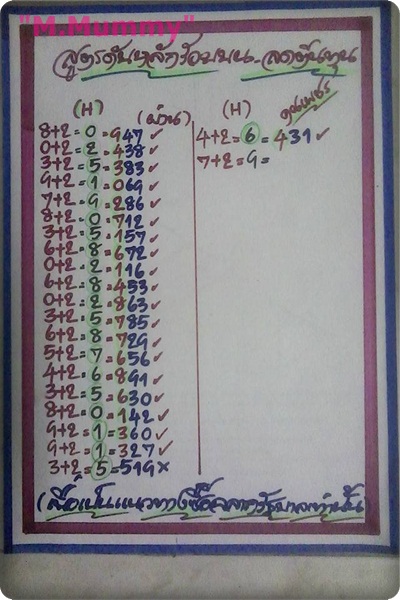 "M.Mummy"
สูตรดับหลักร้อยบน-ลดต้นทุน
(H) (ผ่าน)
8+2=0=947✓
0+2=2=438✓
3+2=5=383✓
9+2=1=069✓
7+2=9=286✓
8+2=0=712✓
3+2=5=157✓
6+2=8=672✓
0+2=2=116✓
6+2=8=453✓
0+2=2=863✓
3+2=5=785✓
6+2=8=729✓
5+2=7=656✓
4+2=6=899✓
3+2=5=630✓
8+2=0=142✓
9+2=1=360✓
9+2=1=327✓
3+2=5=519×
(H)
4+2=6=431✓
7+2=9=
(เพื่อเป็นแนวทางซื้อสลากรัฐบาลเท่านั้น)